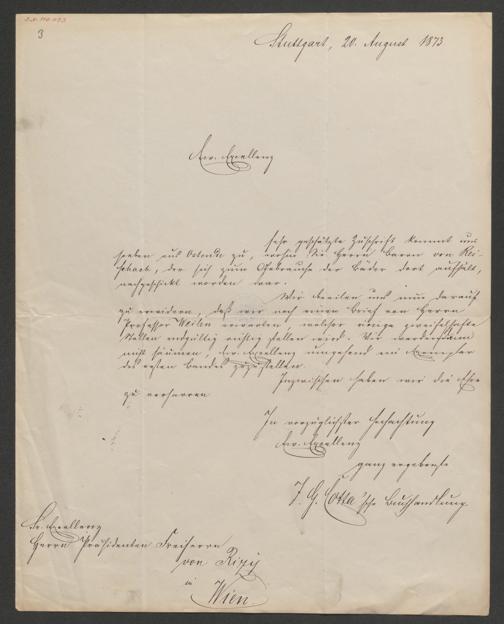 3
Stuttgart, 20. August 1873
Ew. Excellenz
sehr geschätzte Zuschrift kommt uns
soeben aus Ostende zu, wohin sie Herrn Baron von Rei-
schach, der sich zum Gebrauche der Bäder dort aufhält,
nachgeschickt worden war.
Wir beeilen uns nun darauf
zu erwidern, daß wir noch einen Brief von Herrn
Professor Weilen erwarten, welcher einige zweifelhafte
Stellen endgültig richtig stellen wird. Wir werden dann
nicht säumen, Ew. Excellenz umgehend ein Exemplar
des ersten Bandes zuzustellen.
Inzwischen haben wir die Ehre
zu verharren
In vorzüglichster Hochachtung
Ew. Excellenz
ganz ergebenste
J. G. Cotta'sche Buchhandlung
Sr. Excellenz
Herrn Präsidenten Freiherrn
von Rizy
in
Wien